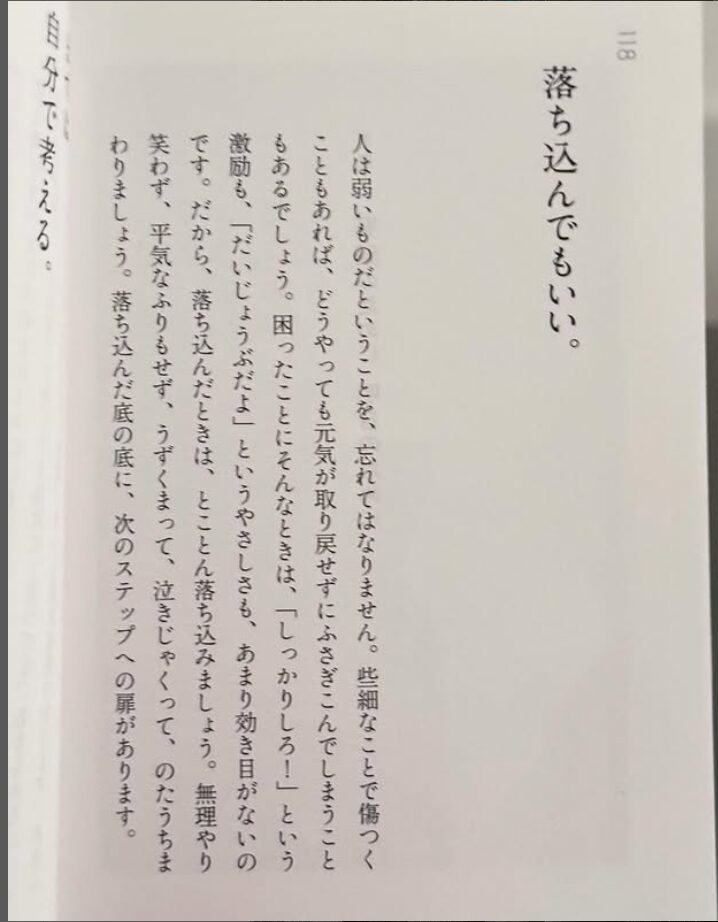 118
落ち込んでもいい。
人は弱いものだということを、忘れてはなりません。些細なことで傷つく
こともあれば、どうやっても元気が取り戻せずにふさぎこんでしまうこと
もあるでしょう。困ったことにそんなときは、「しっかりしろ！」という
激励も、「だいじょうぶだよ」というやさしさも、あまり効き目がないの
です。だから、落ち込んだときは、とことん落ち込みましょう。無理やり
笑わず、平気なふりもせず、うずくまって、泣きじゃくって、のたうちま
わりましょう。落ち込んだ底の底に、次のステップへの扉があります。
自分で考える。